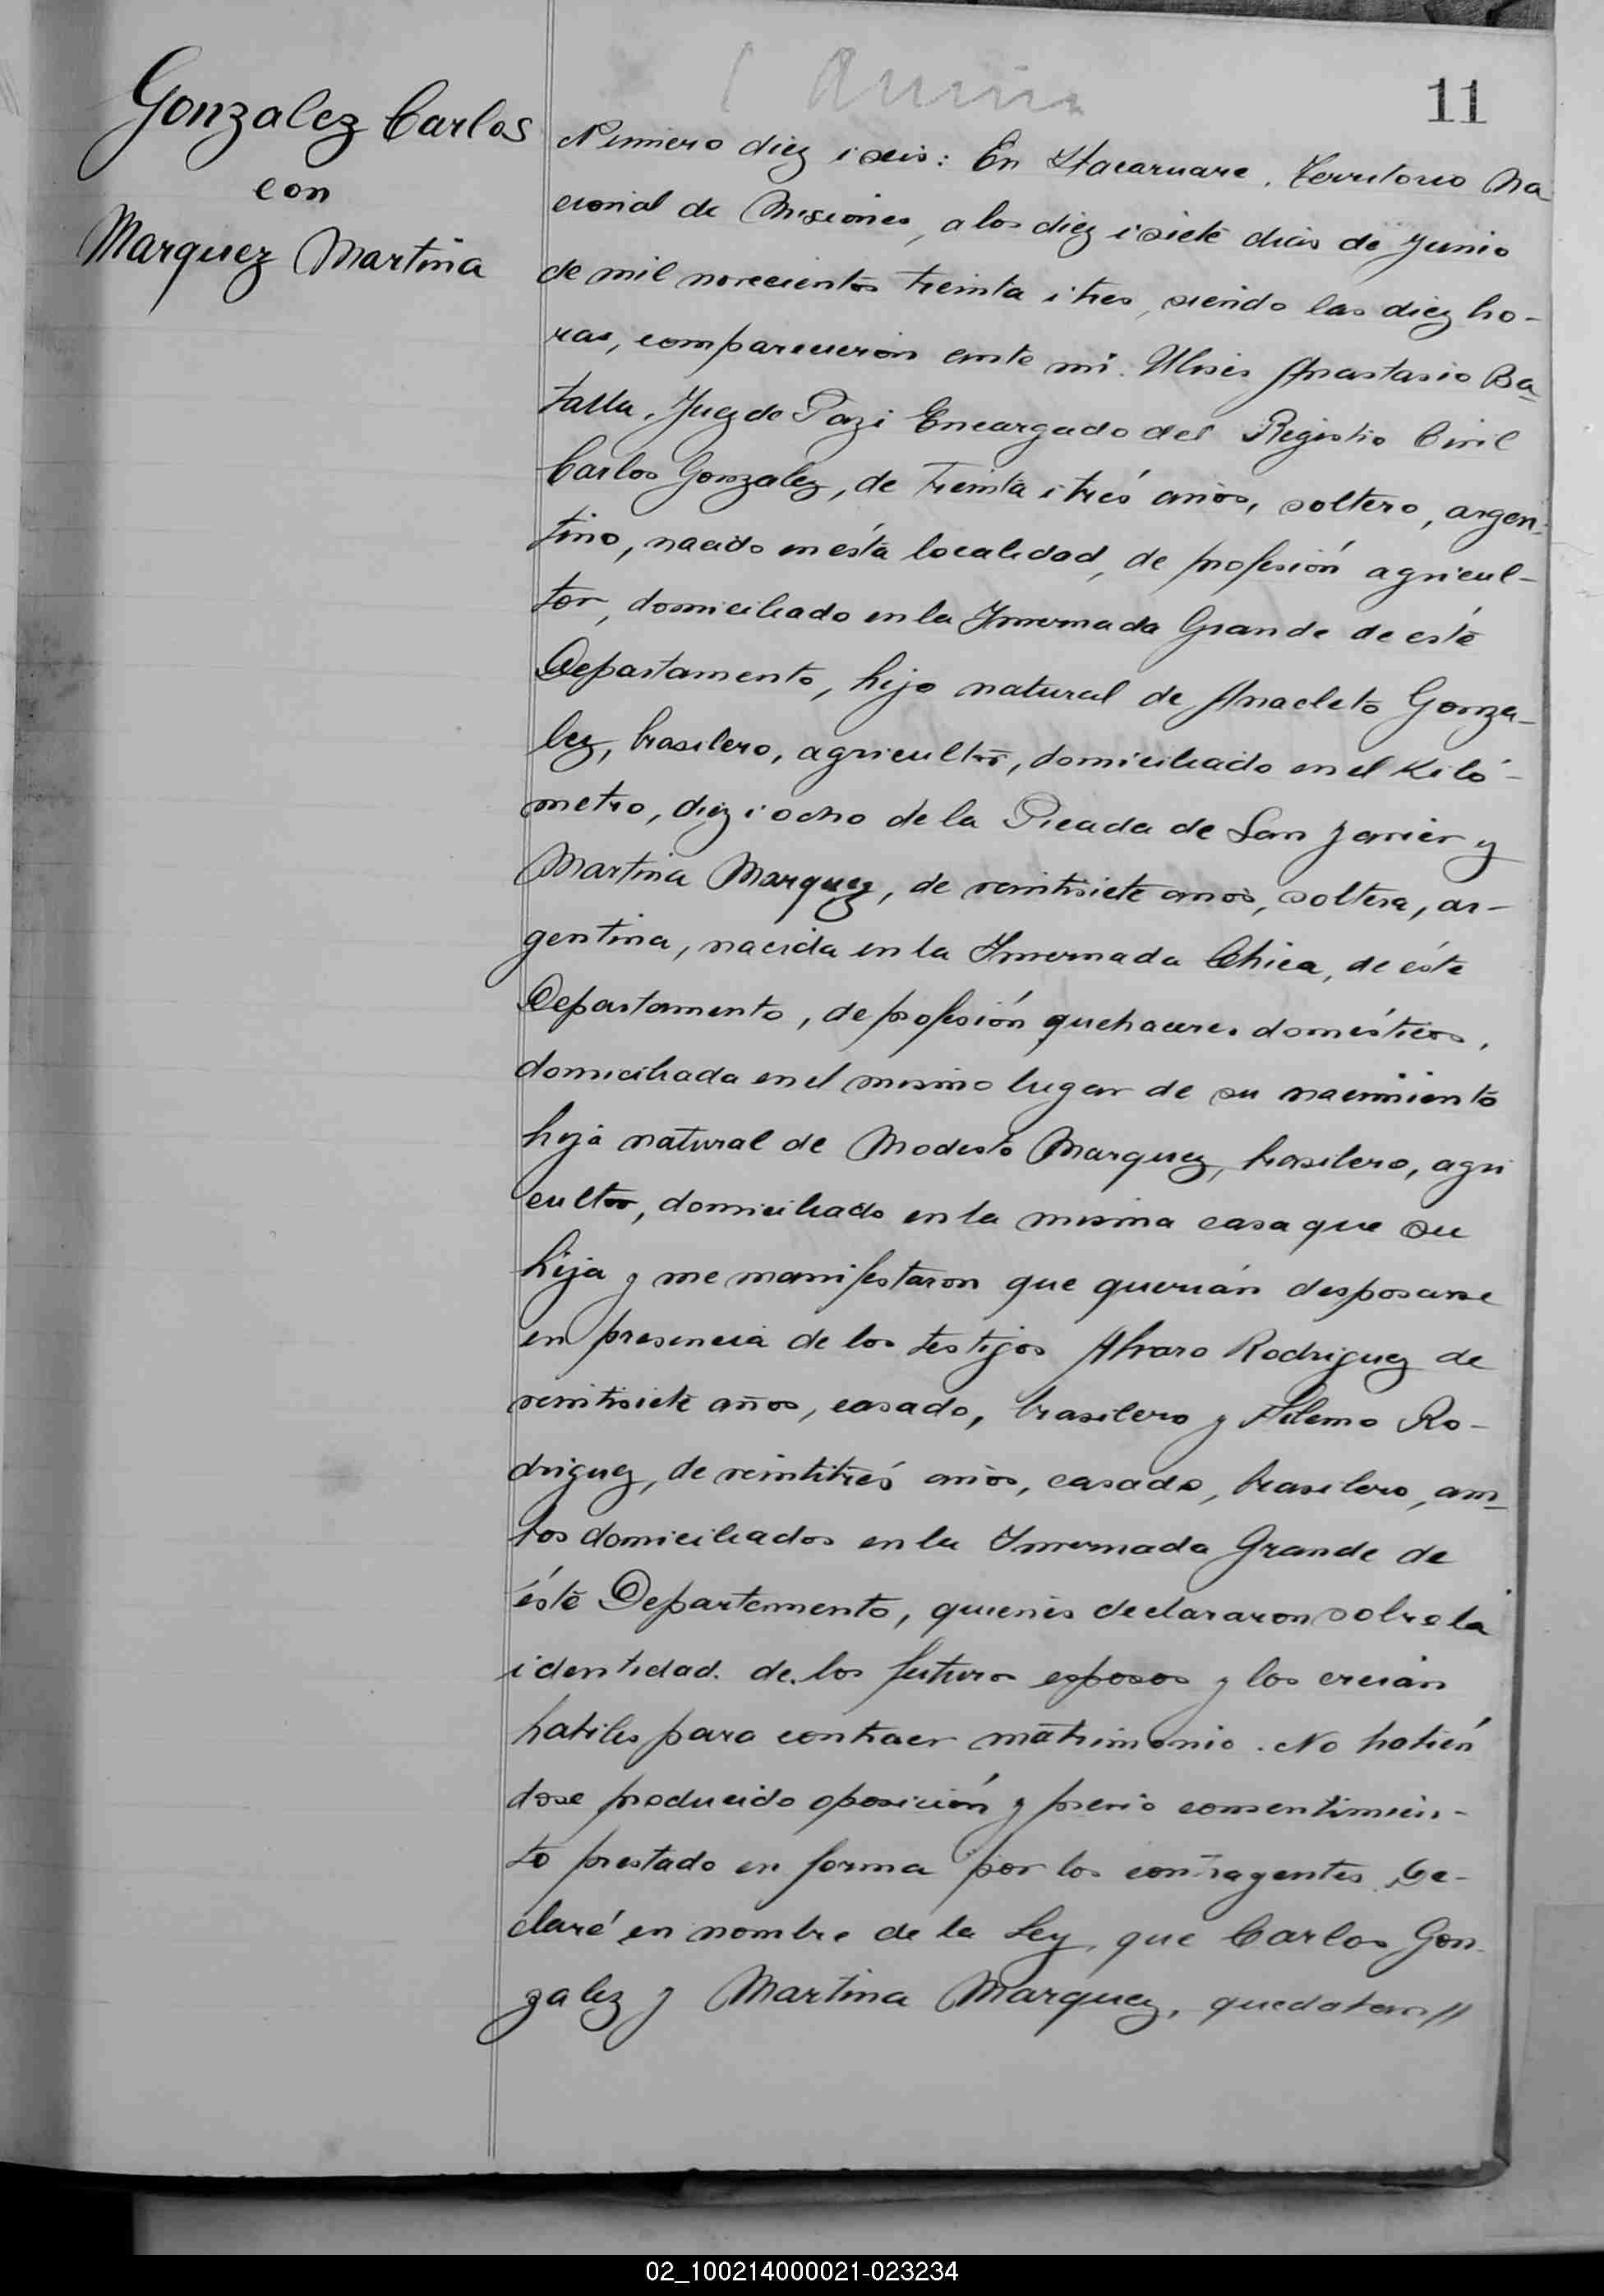 11
Gonzalez Carlos
con
Marquez Martina
Número diez i seis: En Itacaruare, Territorio Na
cional de Misiones, a los diez i siete dias de Junio
de mil novecientos treinta i tres, siendo las diez ho-
ras, comparecieron ante mi. Ulises Anastasio Ba
talla, Juez de Paz i Encargado del Registro Civil
Carlos Gonzalez, de treinta i trés años, soltero, argen-
tino, nacido en ésta localidad, de profesión agricul-
tor, domiciliado en la Invernada Grande de esté
Departamento, hijo natural de Anacleto Gonza-
lez, brasilero, agricultor, domiciliado en el Kiló-
metro, diez i ocho de la Picada de San Javier y
Martina Marquez, de veintisiete anos, soltera, ar-
gentina, nacida en la Invernada Chica, de éste
Departamento, de profesión quehaceres domésticos,
domiciliada en el mismo lugar de su nacimiento
hija natural de Modesto Marquez, brasilero, agri
cultor, domiciliado en la misma casa que su
hija y me manifestaron que querián desposarse
en presencia de los testijos Alvaro Rodriguez de
veintisiete años, casado, brasilero y Filemo Ro-
driguez, de veintitrés años, casado, brasilero, am-
bos domiciliados en la Invernada Grande de
ésté Departamento, quienes declararon sobre la
identidad. de los futuros esposos y los creián
habiles para contraer matrimonio. No habién
dose producido oposición y previo consentimien-
to prestado en forma por los contragentes De-
claré en nombre de la Ley, que Carlos Gon-
zalez y Martina Marquez, quedaban //
02_100214000021-023234